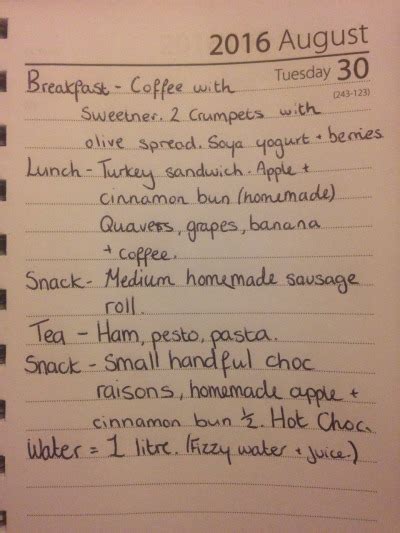 2016 August
Tuesday 30
(243-123)
Breakfast - Coffee with
Sweetner. 2 Crumpets with
olive spread. Soya yogurt + berries
Lunch - Turkey sandwich. Apple +
cinnamon bun (homemade)
Quavers, grapes, banana
+ coffee.
Snack - Medium homemade sausage
roll.
Tea - Ham, pesto, pasta.
Snack - Small handful choc
raisons, homemade apple +
cinnamon bun ½. Hot Choc.
Water = 1 litre. (Fizzy water + juice.)